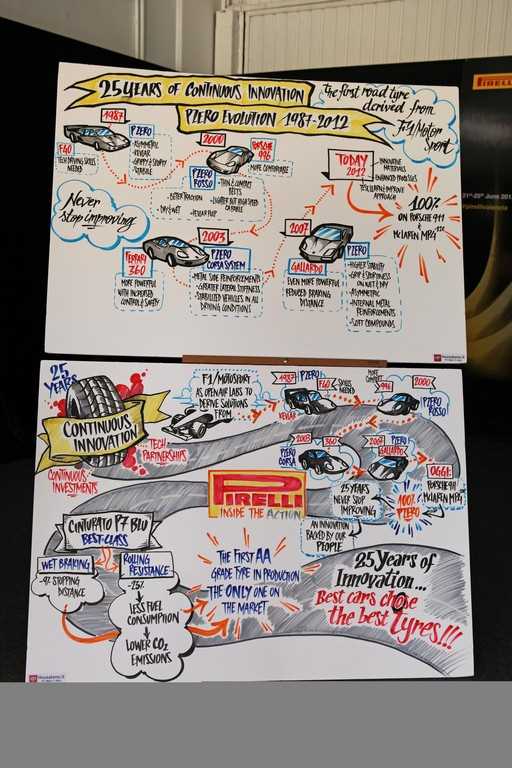 25 YEARS OF CONTINUOUS INNOVATION
PZERO EVOLUTION 1987-2012
the first road tyre
derived from
F1/Motor
Sport
PIRELLI
1987
F40
TECH DRIVING SKILLS
NEEDED
PZERO
- ASYMMETRIC
- KEVLAR
2000
PORSCHE
996
- MORE COMFORTABLE
PZERO
ROSSO
- THIN & COMPACT
BELTS
- BETTER TRACTION
- LIGHTER BUT HIGH SPEED
CAPABLE
- DRY & WET
- KEVLAR PULP
TODAY
2012
- INNOVATIVE
MATERIALS
- ENHANCED PROCESSES
APPROACH
100%
ON PORSCHE 911
& McLAREN MP4
Never
stop improving
FERRARI
360
MORE POWERFUL
WITH INCREASED
CONTROL & SAFETY
2003
PZERO
CORSA SYSTEM
- METAL SIDE REINFORCEMENTS
- GREATER LATERAL STIFFNESS
- STABILIZED VEHICLES IN ALL
DRIVING CONDITIONS
2007
GALLARDO
EVEN MORE POWERFUL
REDUCED BRAKING
DISTANCE
PZERO
- HIGHER STABILITY
- GRIP & STURDINESS
ON WET & DRY
- ASYMMETRIC
- INTERNAL METAL
REINFORCEMENTS
- SOFT COMPOUNDS
25
YEARS
CONTINUOUS
INNOVATION
CONTINUOUS
INVESTMENTS
... TECH
PARTNERSHIPS
F1/MOTORSPORT
AS OPEN AIR LABS TO
DERIVE SOLUTIONS
FROM
1987
PZERO
F40
SKILLS
NEEDED
KEVLAR
MORE
COMFORT
996
2000
PZERO
ROSSO
2003
360
PZERO
CORSA
2007
PZERO
GALLARDO
OGGI:
PORSCHE 911
McLAREN MP4
25 YEARS
NEVER STOP
IMPROVING
100%
PZERO
AN INNOVATION
BACKED BY OUR
PEOPLE
PIRELLI
INSIDE THE ACTION
CINTURATO P7 BLU
BEST-CLASS
WET BRAKING
STOPPING
DISTANCE
ROLLING
RESISTANCE
LESS FUEL
CONSUMPTION
LOWER CO2
EMISSIONS
THE FIRST AA
GRADE TYRE IN PRODUCTION
THE ONLY ONE ON
THE MARKET
25 Years of
Innovation...
Best cars chose
the best tyres!!!